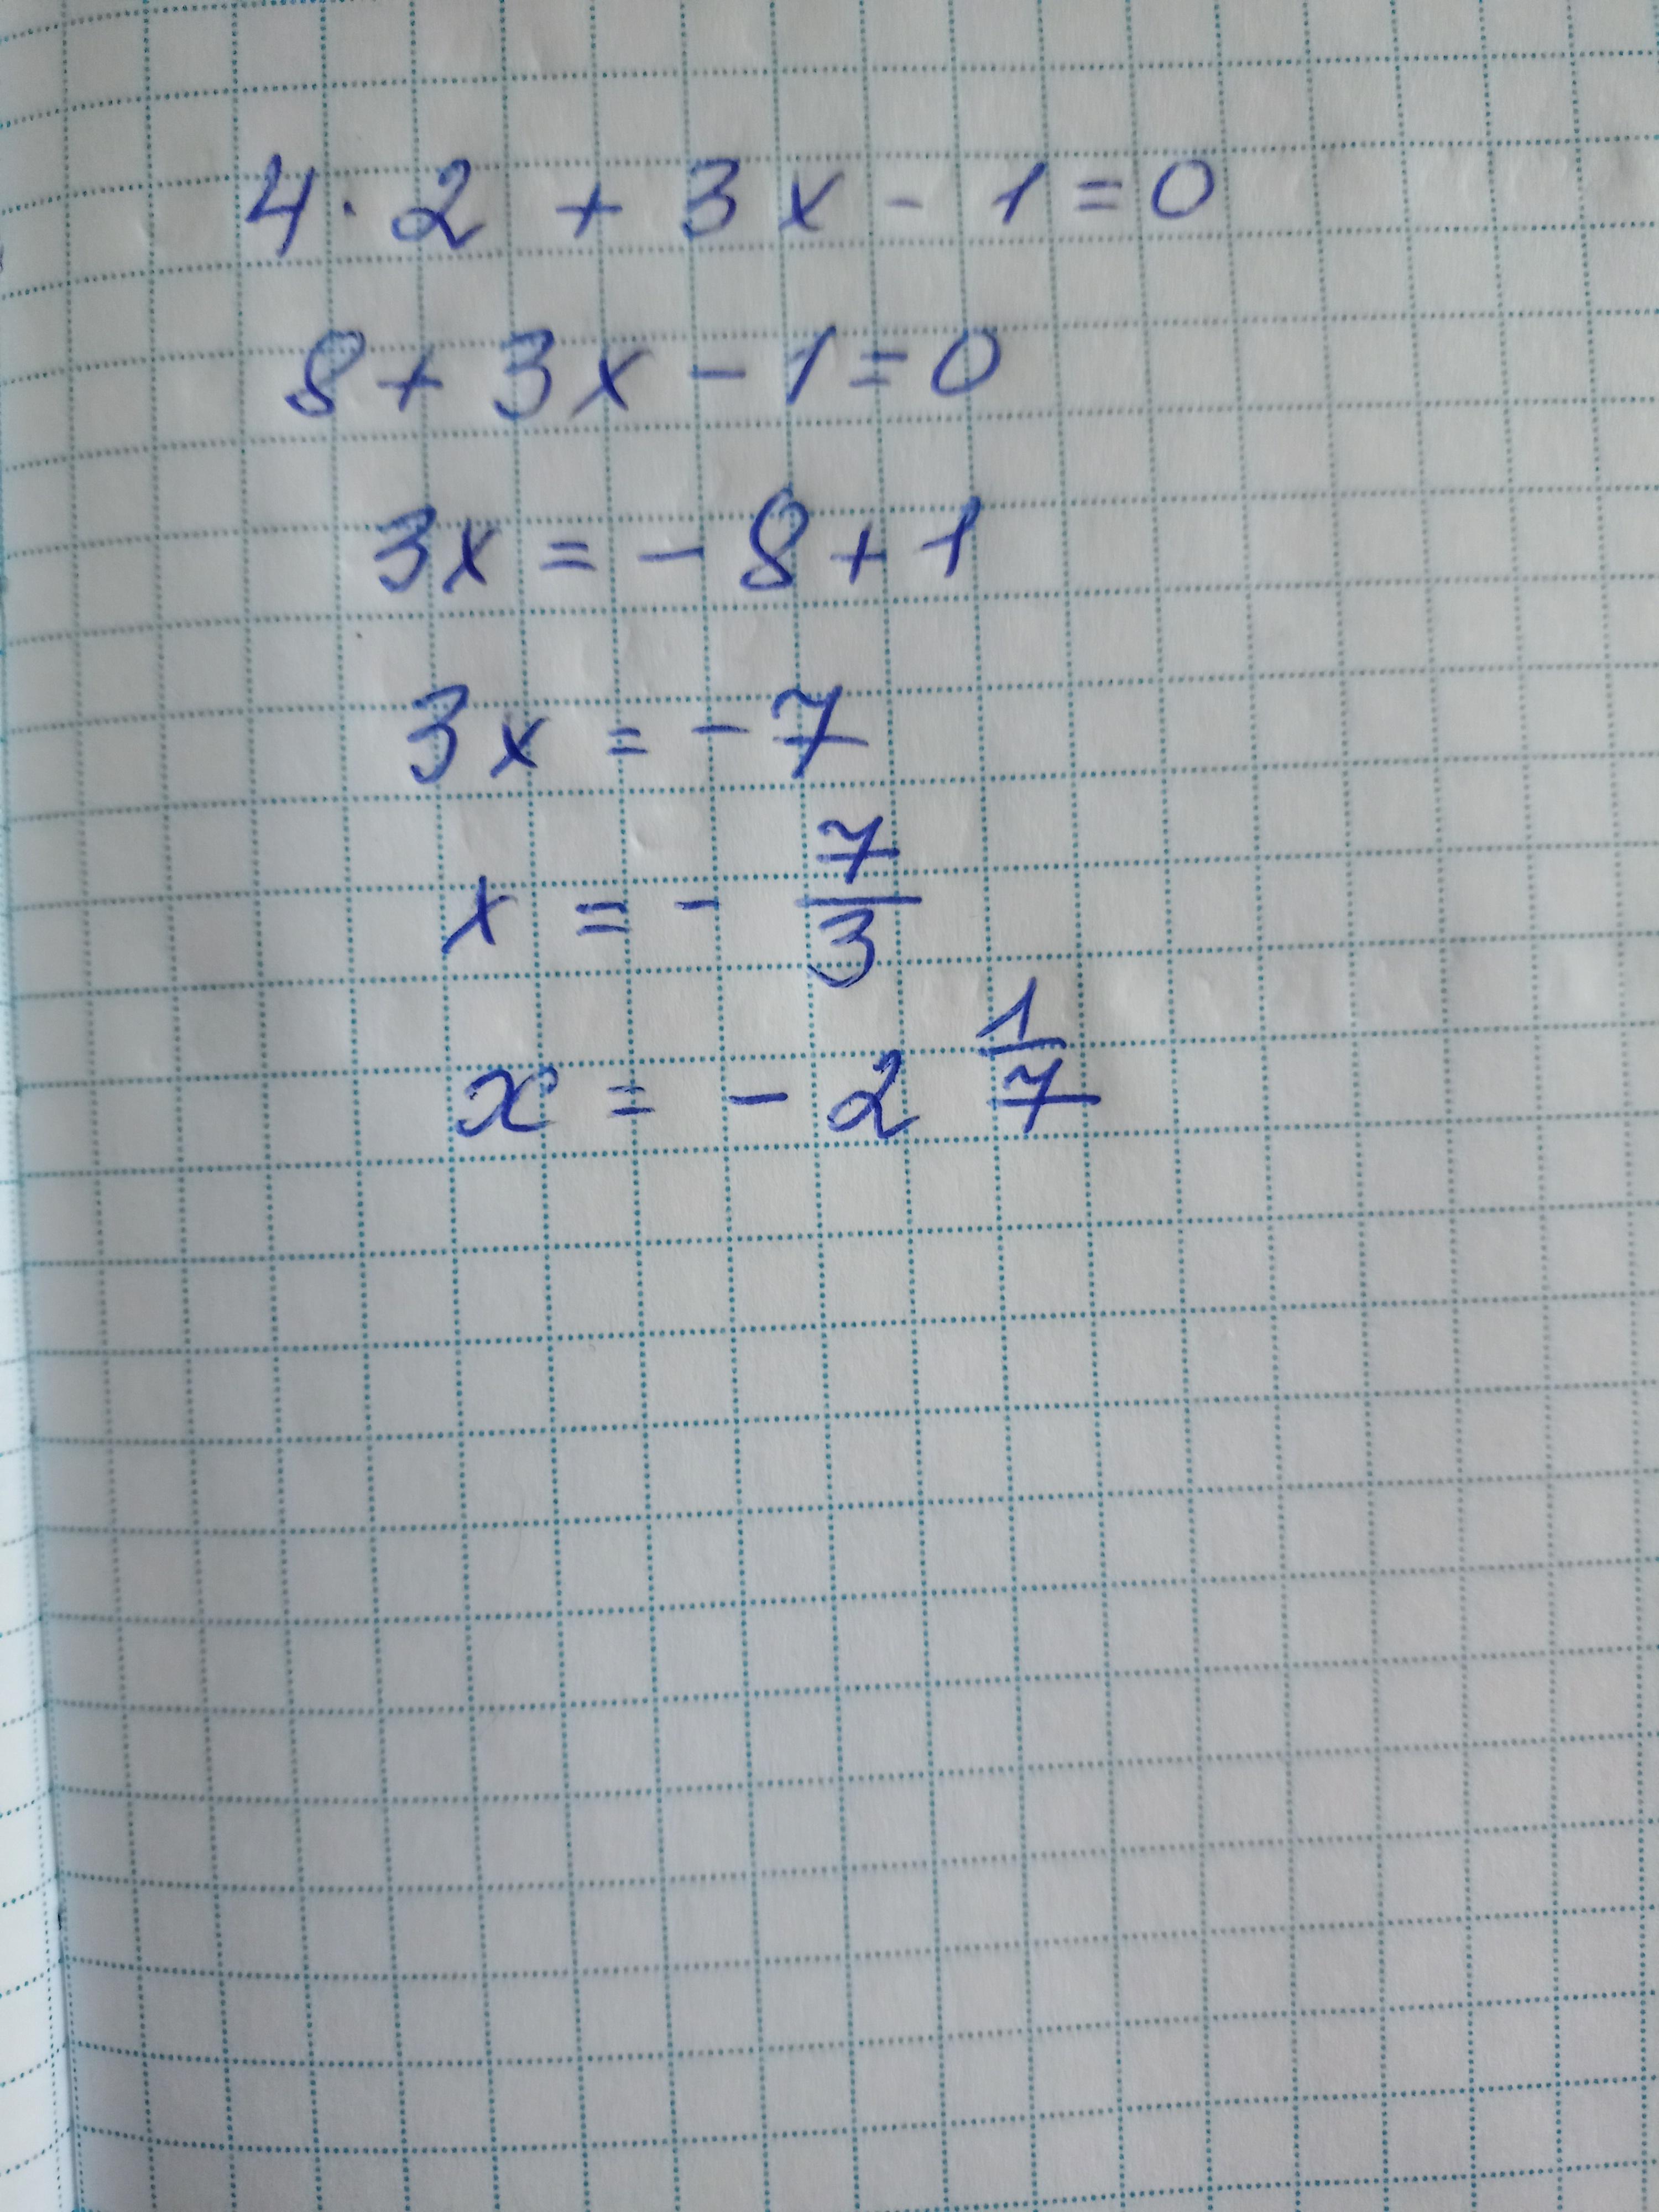 4 · 2 + 3x - 1 = 0
8 + 3x - 1 = 0
3x = - 8 + 1
3x = - 7
x = - 7/3
x = - 2 1/7